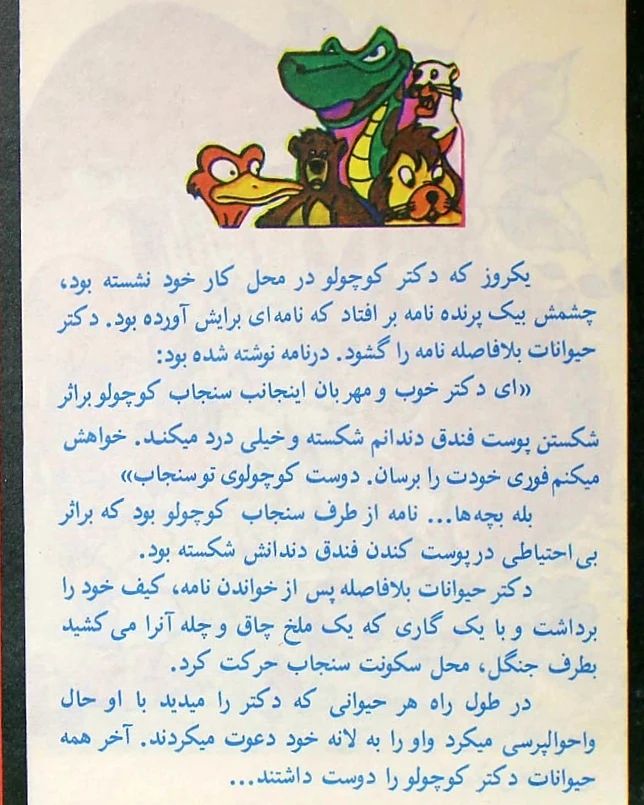 یکروز که دکتر کوچولو در محل کار خود نشسته بود،
چشمش بیک پرنده نامه بر افتاد که نامه‌ای برایش آورده بود. دکتر
حیوانات بلافاصله نامه را گشود. درنامه نوشته شده بود:
«ای دکتر خوب و مهربان اینجانب سنجاب کوچولو براثر
شکستن پوست فندق دندانم شکسته و خیلی درد میکند. خواهش
میکنم فوری خودت را برسان. دوست کوچولوی تو سنجاب»
بله بچه‌ها... نامه از طرف سنجاب کوچولو بود که براثر
بی‌احتیاطی در پوست کندن فندق دندانش شکسته بود.
دکتر حیوانات بلافاصله پس از خواندن نامه، کیف خود را
برداشت و با یک گاری که یک ملخ چاق و چله آنرا می‌کشید
بطرف جنگل، محل سکونت سنجاب حرکت کرد.
در طول راه هر حیوانی که دکتر را میدید با او حال
واحوالپرسی میکرد واو را به لانه خود دعوت میکردند. آخر همه
حیوانات دکتر کوچولو را دوست داشتند...